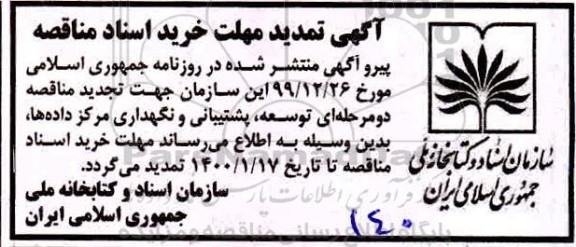 آگهی تمدید مهلت خرید اسناد مناقصه
پیرو آگهی منتشر شده در روزنامه جمهوری اسلامی
مورخ ۹۹/۱۲/۲۶ این سازمان جهت تجدید مناقصه
دومرحله‌ای توسعه، پشتیبانی و نگهداری مرکز داده‌ها،
بدین وسیله به اطلاع می‌رساند مهلت خرید اسناد
مناقصه تا تاریخ ۱۴۰۰/۱/۱۷ تمدید می‌گردد.
سازمان اسناد و کتابخانه ملی
جمهوری اسلامی ایران
سازمان اسناد و کتابخانه ملی
جمهوری اسلامی ایران
۱۴۰
پایگاه اطلاع رسانی مناقصه و مزایده